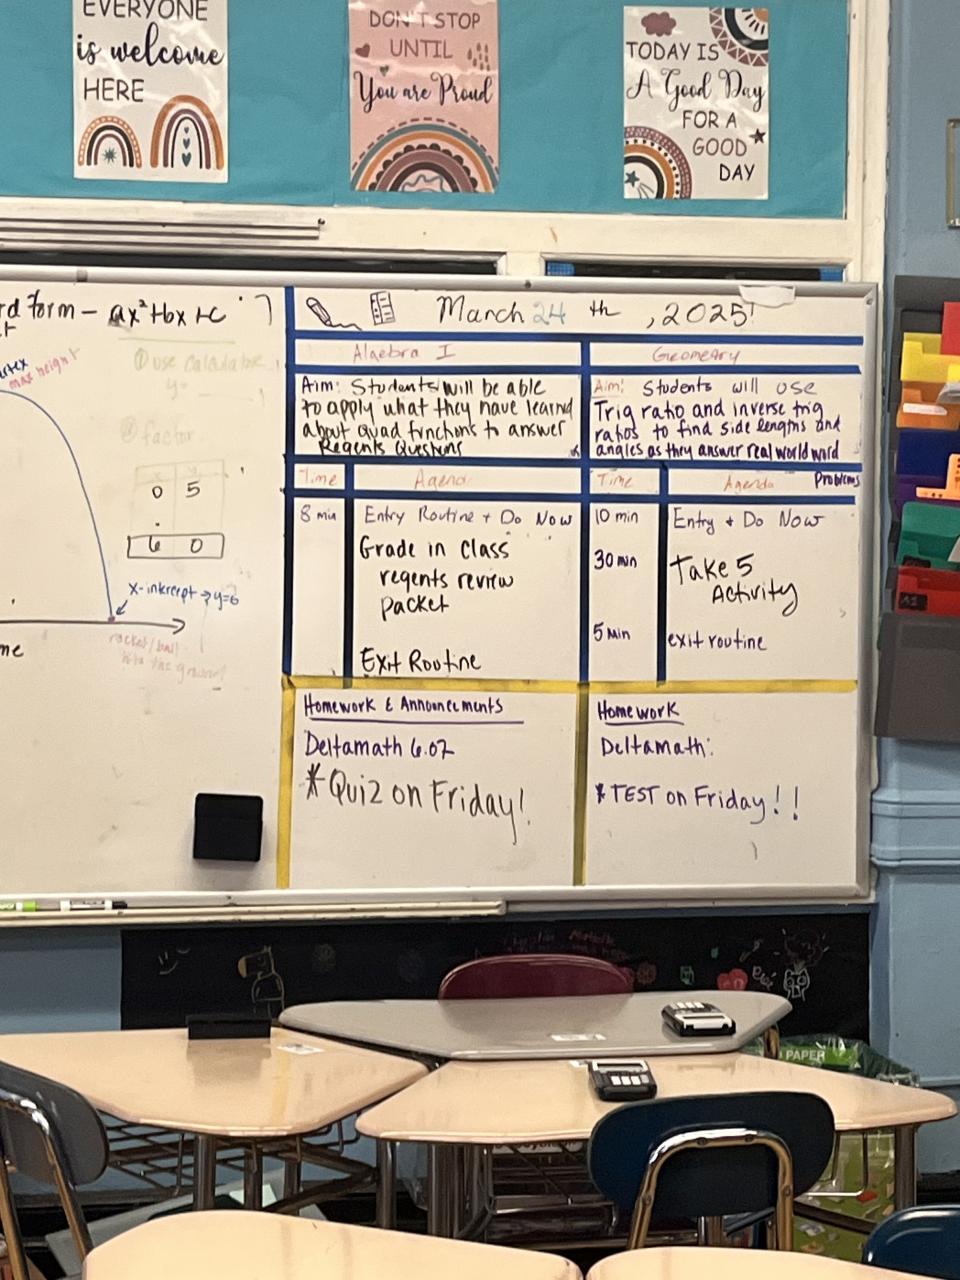 EVERYONE
is welcome
HERE
DON'T STOP
UNTIL
You are Proud
TODAY IS
A Good Day
FOR A
GOOD
DAY
form - ax²+bx+c
max height
① use calculator
y=
② factor
0 5
6 0
x-intercept → y=0
March 24 th, 2025!
Algebra I
Aim: Students will be able
to apply what they have learned
about quad functions to answer
Regents Questions
Time Agenda
8 min Entry Routine + Do Now
Grade in class
regents review
packet
Exit Routine
Homework & Announcements
Deltamath 6.07
*Quiz on Friday!
Geometry
Aim: Students will use
Trig ratio and inverse trig
ratios to find side lengths and
angles as they answer real world word
Problems
Time Agenda
10 min Entry + Do Now
30 min Take 5
Activity
5 min exit routine
Homework
Deltamath:
*TEST on Friday!!
PAPER